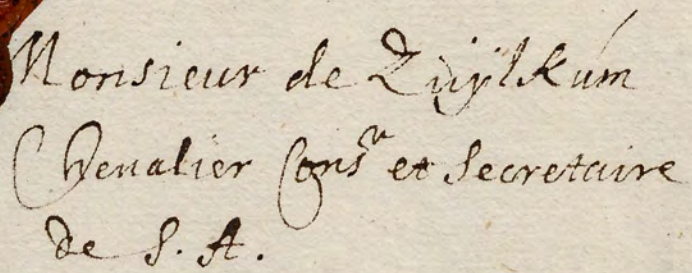 Monsieur de Zuÿlkúm
Chevalier Consr et Secretaire
de S. A.